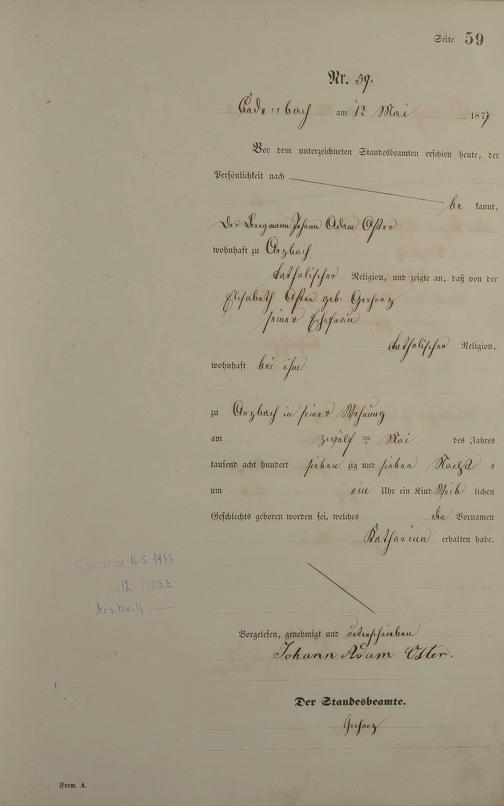 Seite 59
Nr. 59.
Cadenbach am 12 Mai 1877
Vor dem unterzeichneten Standesbeamten erschien heute, der
Persönlichkeit nach
be kannt,
Der Bergmann Johann Adam Oster
wohnhaft zu Arzbach
katholischer Religion, und zeigte an, daß von der
Elisabeth Oster geb. Gerharz
seiner Ehefrau
katholischer Religion,
wohnhaft bei ihm
zu Arzbach in seiner Wohnung
am zwölf ten Mai des Jahres
tausend acht hundert sieben zig und sieben Nachts
um ein Uhr ein Kind Weib lichen
Geschlechts geboren worden sei, welches den Vornamen
Katharina erhalten habe.
16.5.1957
12
Arzbach
Vorgelesen, genehmigt und unterschrieben
Johann Adam Oster.
Der Standesbeamte.
Gerharz
Form. A.